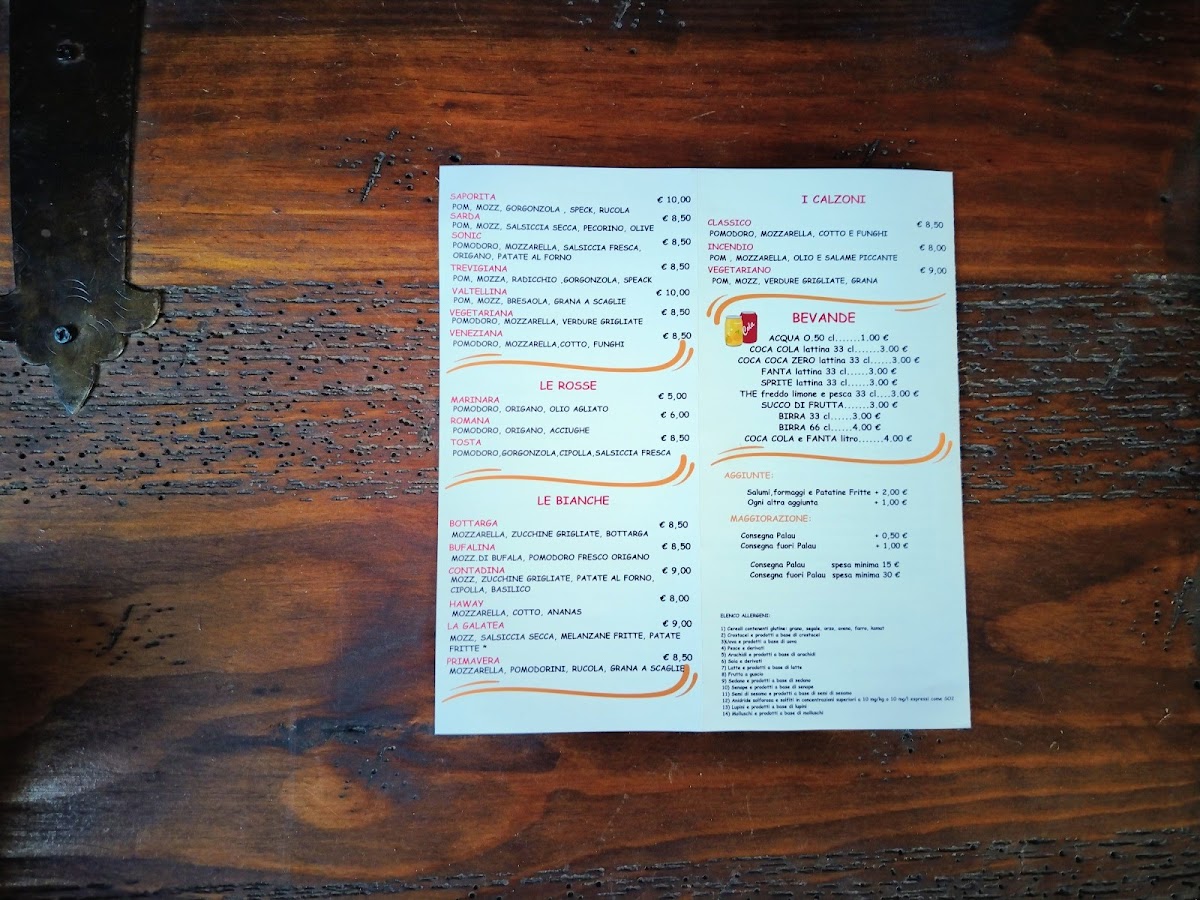 SAPORITA € 10,00
POM, MOZZ, GORGONZOLA , SPECK, RUCOLA
SARDA € 8,50
POM, MOZZ, SALSICCIA SECCA, PECORINO, OLIVE
SONIC € 8,50
POMODORO, MOZZARELLA, SALSICCIA FRESCA,
ORIGANO, PATATE AL FORNO
TREVIGIANA € 8,50
POM, MOZZA, RADICCHIO ,GORGONZOLA, SPEACK
VALTELLINA € 10,00
POM, MOZZ, BRESAOLA, GRANA A SCAGLIE
VEGETARIANA € 8,50
POMODORO, MOZZARELLA, VERDURE GRIGLIATE
VENEZIANA € 8,50
POMODORO, MOZZARELLA,COTTO, FUNGHI
LE ROSSE
MARINARA € 5,00
POMODORO, ORIGANO, OLIO AGLIATO
ROMANA € 6,00
POMODORO, ORIGANO, ACCIUGHE
TOSTA € 8,50
POMODORO,GORGONZOLA,CIPOLLA,SALSICCIA FRESCA
LE BIANCHE
BOTTARGA € 8,50
MOZZARELLA, ZUCCHINE GRIGLIATE, BOTTARGA
BUFALINA € 8,50
MOZZ.DI BUFALA, POMODORO FRESCO ORIGANO
CONTADINA € 9,00
MOZZ, ZUCCHINE GRIGLIATE, PATATE AL FORNO,
CIPOLLA, BASILICO
HAWAY € 8,00
MOZZARELLA, COTTO, ANANAS
LA GALATEA € 9,00
MOZZ, SALSICCIA SECCA, MELANZANE FRITTE, PATATE
FRITTE *
PRIMAVERA € 8,50
MOZZARELLA, POMODORINI, RUCOLA, GRANA A SCAGLIE
I CALZONI
CLASSICO € 8,50
POMODORO, MOZZARELLA, COTTO E FUNGHI
INCENDIO € 8,00
POM , MOZZARELLA, OLIO E SALAME PICCANTE
VEGETARIANO € 9,00
POM, MOZZ, VERDURE GRIGLIATE, GRANA
BEVANDE
ACQUA 0,50 cl.......1.00 €
COCA COLA lattina 33 cl.......3.00 €
COCA COCA ZERO lattina 33 cl......3.00 €
FANTA lattina 33 cl......3.00 €
SPRITE lattina 33 cl......3.00 €
THE freddo limone e pesca 33 cl....3.00 €
SUCCO DI FRUTTA.......3.00 €
BIRRA 33 cl......3.00 €
BIRRA 66 cl......4.00 €
COCA COLA e FANTA litro.......4.00 €
AGGIUNTE:
Salumi,formaggi e Patatine Fritte + 2,00 €
Ogni altra aggiunta + 1,00 €
MAGGIORAZIONE:
Consegna Palau + 0,50 €
Consegna fuori Palau + 1,00 €
Consegna Palau spesa minima 15 €
Consegna fuori Palau spesa minima 30 €
ELENCO ALLERGENI:
1) Cereali contenenti glutine: grano, segale, orzo, avena, farro, kamut
2) Crostacei e prodotti a base di crostacei
3)Uova e prodotti a base di uova
4) Pesce e derivati
5) Arachidi e prodotti a base di arachidi
6) Soia e derivati
7) Latte e prodotti a base di latte
8) Frutta a guscio
9) Sedano e prodotti a base di sedano
10) Senape e prodotti a base di senape
11) Semi di sesamo e prodotti a base di semi di sesamo
12) Anidride solforosa e solfiti in concentrazioni superiori a 10 mg/kg o 10 mg/l espressi come SO2
13) Lupini e prodotti a base di lupini
14) Molluschi e prodotti a base di molluschi